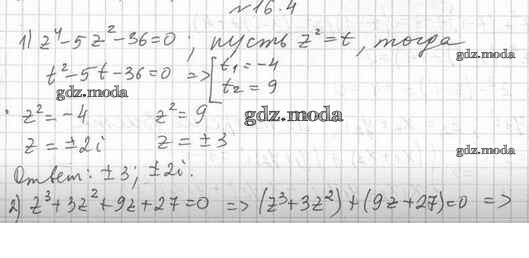 №16.4
1) z⁴-5z²-36=0; пусть z²=t, тогда
gdz.moda
t²-5t-36=0 => [t₁=-4
t₂=9
gdz.moda
z²=-4 z²=9 gdz.moda
z=±2i z=±3
gdz.moda
Ответ: ±3; ±2i.
2) z³+3z²+9z+27=0 => (z³+3z²)+(9z+27)=0 =>